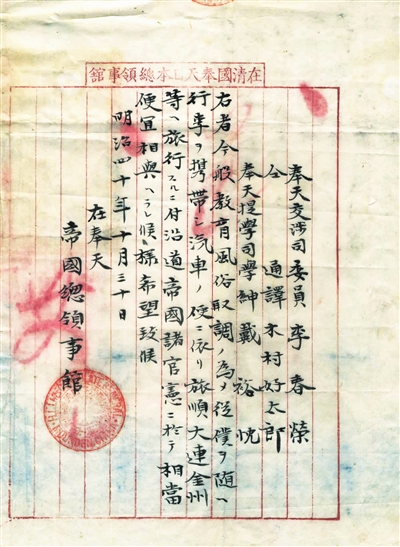 在清國奉天日本總領事館
奉天交渉司委員李春榮
仝 通譯 木村好太郎
奉天提學司學紳戴裕忱
右者今般教育風俗取調ノ為メ從僕ヲ随ヘ
行李ヲ携帶シ汽車ノ便ニ依リ旅順大連金州
等ヘ旅行スルニ付沿道帝國諸官憲ニ於テ相當
便宜相與ヘラレ候様希望致候
明治四十年十月三十日
在奉天
帝國總領事館